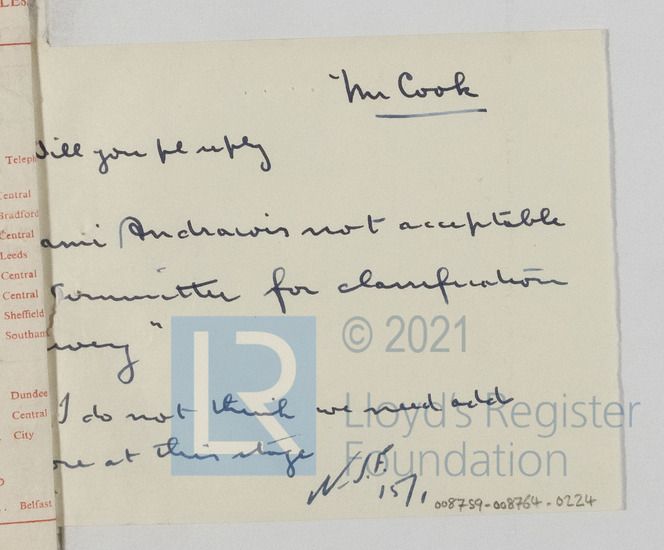 LES
Mr Cook
Will you pl reply
Telep
Central
Bradford
Central
Leeds
Central
Central
Sheffield
Southam
Dundee
Central
City
Belfast
ami Andrawis not acceptable
Committee for classification
"
© 2021
LR
I do not think we need add
Lloyd's Register
Foundation
ore at this stage
N.S.F.
15/1
008759-008764-0224